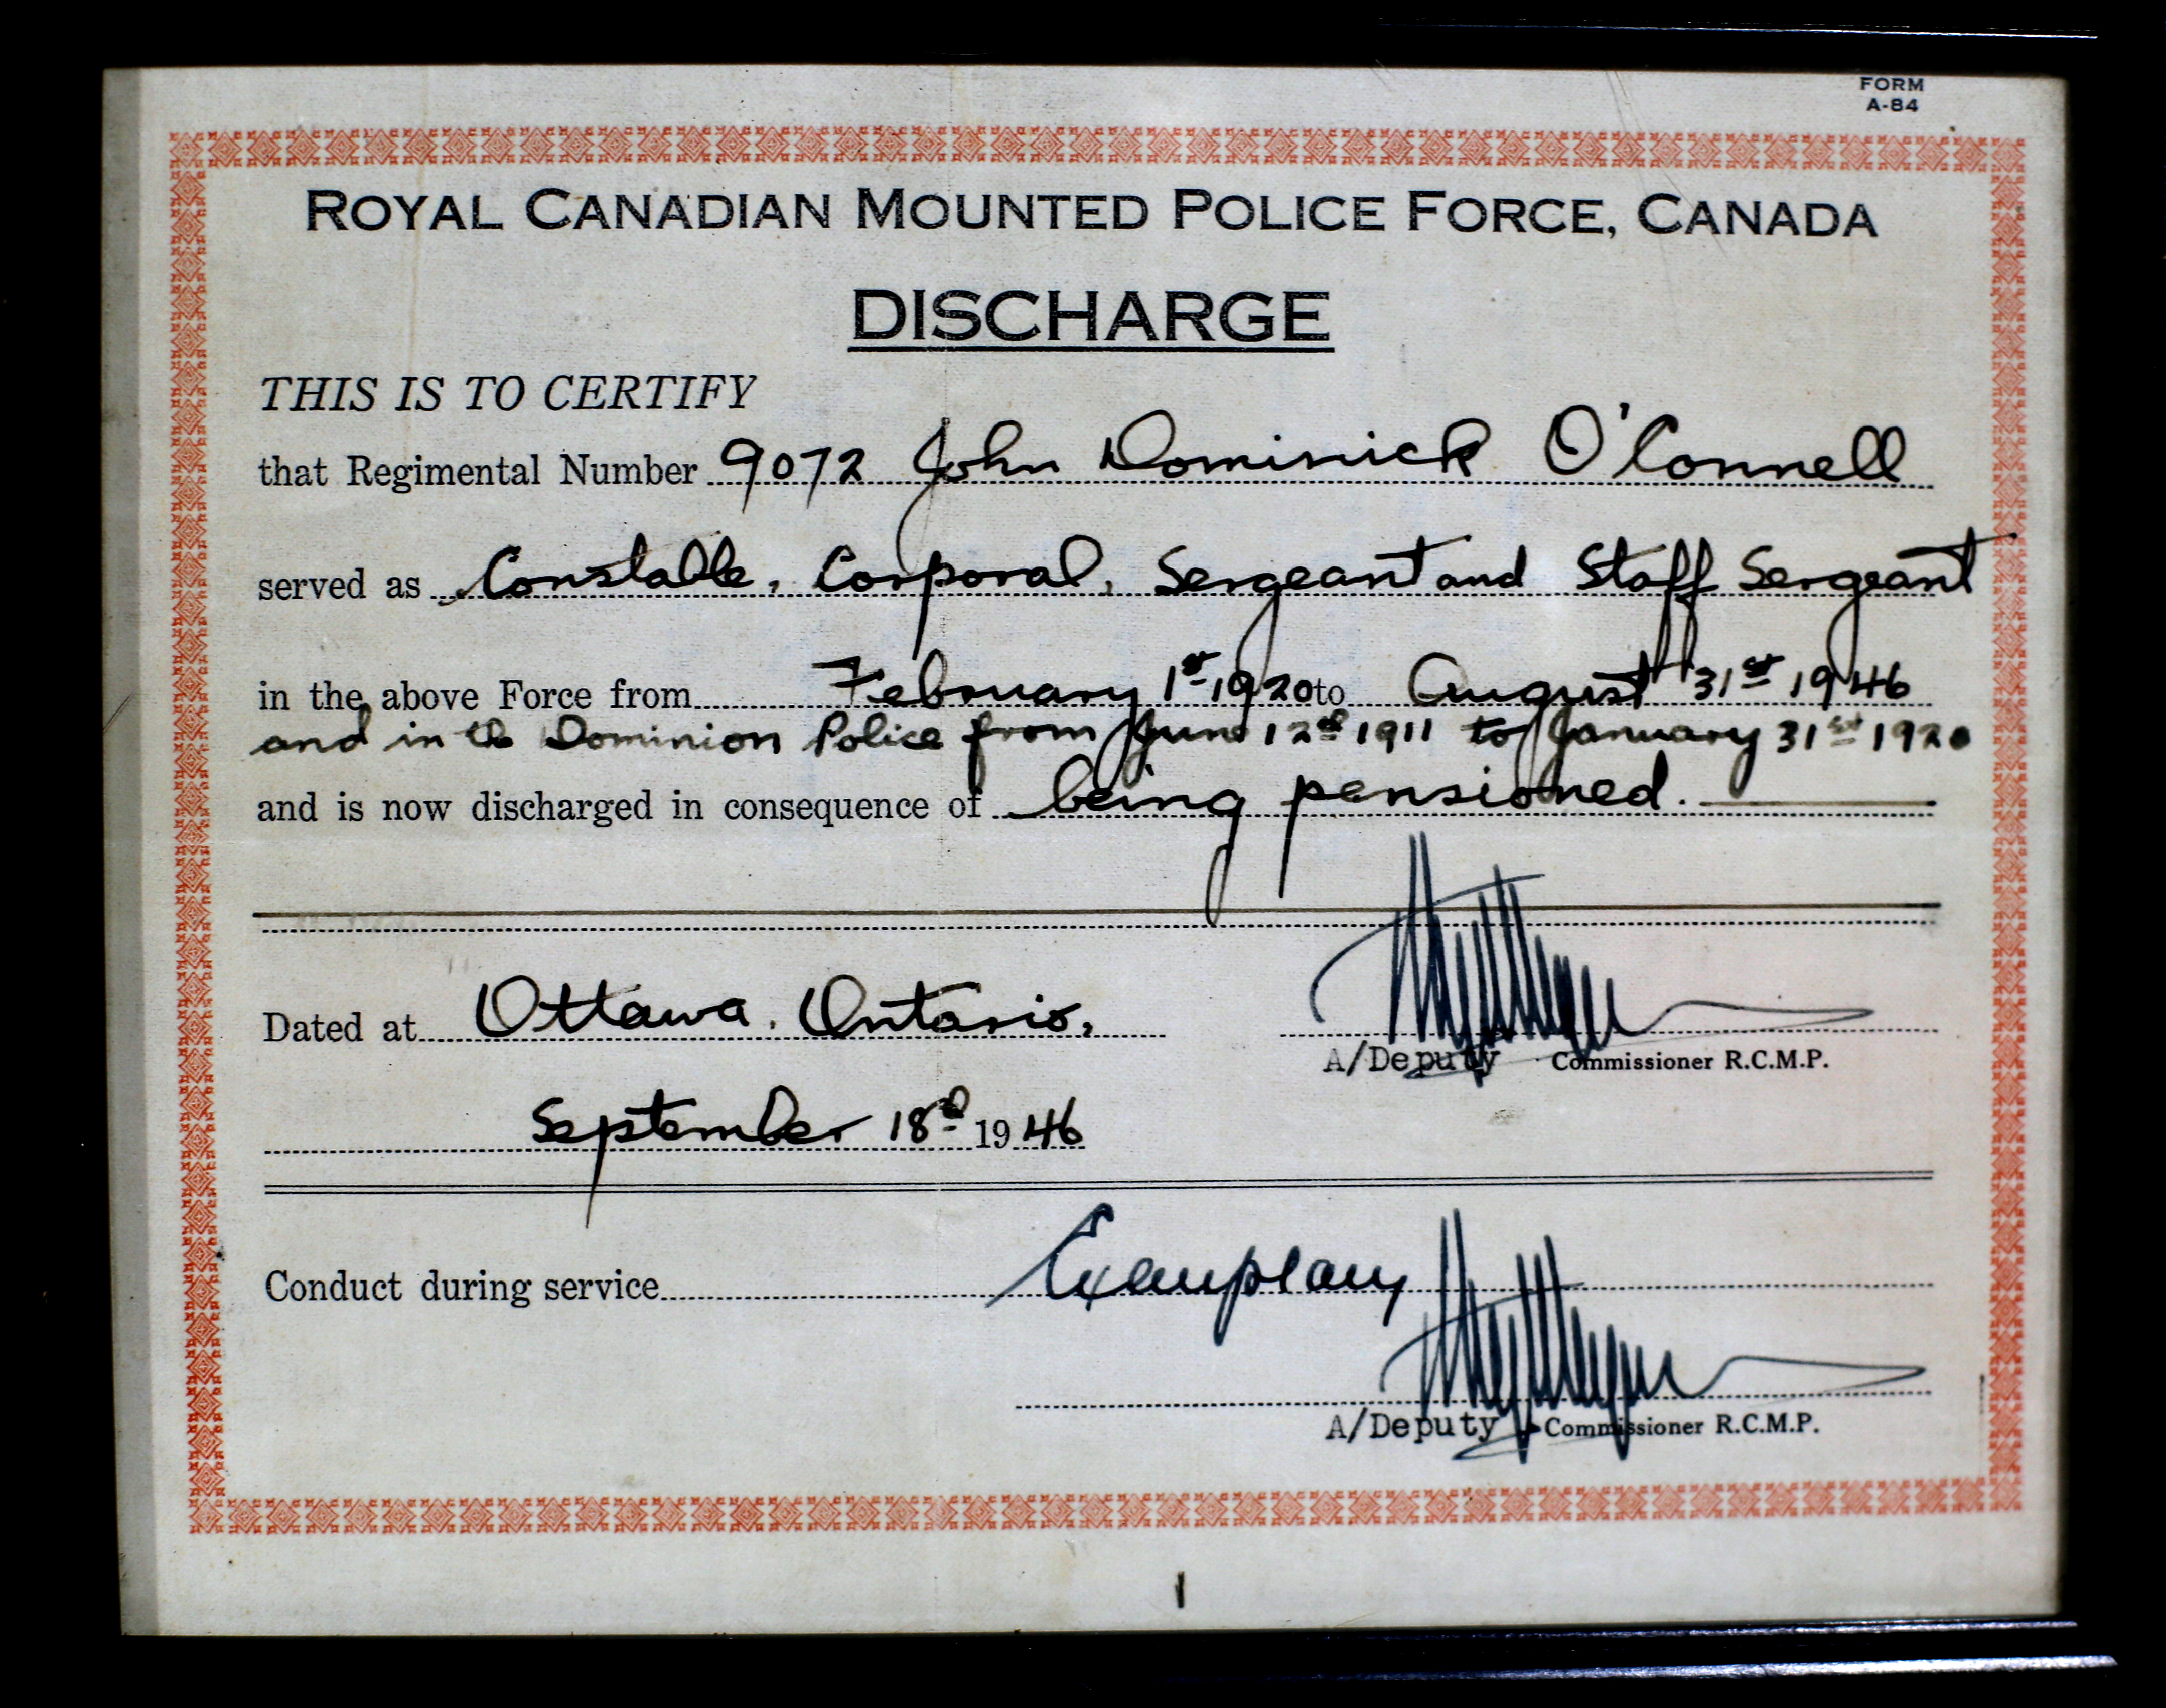 FORM
A-84
ROYAL CANADIAN MOUNTED POLICE FORCE, CANADA
DISCHARGE
THIS IS TO CERTIFY
that Regimental Number 9072 John Dominick O'Connell
served as Constable, Corporal, Sergeant and Staff Sergeant
in the above Force from February 1st 1920 to August 31st 1946
and in the Dominion Police from June 12th 1911 to January 31st 1920
and is now discharged in consequence of being pensioned.
Dated at Ottawa, Ontario,
A/Deputy Commissioner R.C.M.P.
September 18th 1946
Conduct during service Exemplary
A/Deputy Commissioner R.C.M.P.